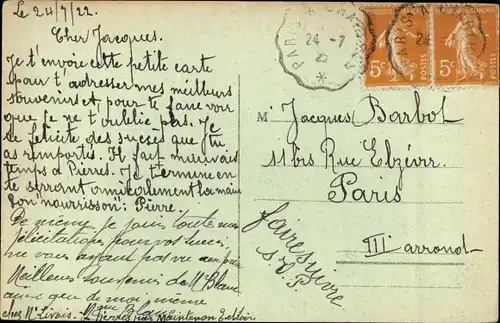 Le 24/7/22.
Cher Jacques.
Je t'envoie cette petite carte
pour t'adresser mes meilleurs
souvenirs et pour te faire voir
que je ne t'oublie pas. Je
te félicite des succès que tu
as remportés. Il fait mauvais
temps à Pierres. Je termine en
te serrant amicalement la main
ton nourrisson": Pierre.
De même je joins toutes mes
félicitations pour vos succès,
ne vous ayant pas vu
Meilleurs souvenirs de Mr Blanc
ainsi que de moi même
chez Mr Pierres par Maintenon E et Loir
PARIS A
24 -7
22
*
PARIS A
5c
POSTES
5c
POSTES
M Jacques Barbot
11 bis Rue Elzévir
Paris
III arrondt
faire suivre
s.v.P.